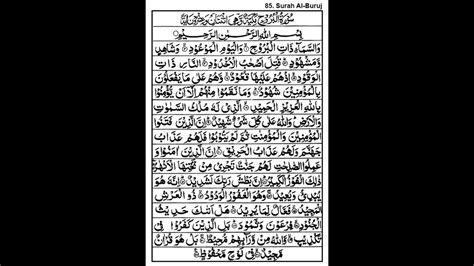 85. Surah Al-Buruj
سُوْرَةُ الْبُرُوْجِ مَكِّيَّةٌ وَّهِيَ اثْنَتَانِ وَعِشْرُوْنَ اٰيَةً
بِسْمِ اللّٰهِ الرَّحْمٰنِ الرَّحِيْمِ
وَالسَّمَآءِ ذَاتِ الْبُرُوْجِ ۙ وَالْيَوْمِ الْمَوْعُوْدِ ۙ وَشَاهِدٍ
وَّمَشْهُوْدٍ ؕ قُتِلَ اَصْحٰبُ الْاُخْدُوْدِ ۙ النَّارِ ذَاتِ
الْوَقُوْدِ ۙ اِذْ هُمْ عَلَيْهَا قُعُوْدٌ ۙ وَّهُمْ عَلٰى مَا يَفْعَلُوْنَ
بِالْمُؤْمِنِيْنَ شُهُوْدٌ ؕ وَمَا نَقَمُوْا مِنْهُمْ اِلَّاۤ اَنْ يُّؤْمِنُوْا
بِاللّٰهِ الْعَزِيْزِ الْحَمِيْدِ ۙ الَّذِيْ لَهٗ مُلْكُ السَّمٰوٰتِ
وَالْاَرْضِ ؕ وَاللّٰهُ عَلٰى كُلِّ شَيْءٍ شَهِيْدٌ ؕ اِنَّ الَّذِيْنَ فَتَنُوا
الْمُؤْمِنِيْنَ وَالْمُؤْمِنٰتِ ثُمَّ لَمْ يَتُوْبُوْا فَلَهُمْ عَذَابُ
جَهَنَّمَ وَلَهُمْ عَذَابُ الْحَرِيْقِ ؕ اِنَّ الَّذِيْنَ اٰمَنُوْا وَ
عَمِلُوا الصّٰلِحٰتِ لَهُمْ جَنّٰتٌ تَجْرِيْ مِنْ تَحْتِهَا الْاَنْهٰرُ
ذٰلِكَ الْفَوْزُ الْكَبِيْرُ ؕ اِنَّ بَطْشَ رَبِّكَ لَشَدِيْدٌ ؕ اِنَّهٗ هُوَ
يُبْدِئُ وَيُعِيْدُ ۚ وَهُوَ الْغَفُوْرُ الْوَدُوْدُ ۙ ذُو الْعَرْشِ
الْمَجِيْدُ ۙ فَعَّالٌ لِّمَا يُرِيْدُ ؕ هَلْ اَتٰىكَ حَدِيْثُ
الْجُنُوْدِ ۙ فِرْعَوْنَ وَثَمُوْدَ ؕ بَلِ الَّذِيْنَ كَفَرُوْا فِيْ
تَكْذِيْبٍ ۙ وَّاللّٰهُ مِنْ وَّرَآئِهِمْ مُّحِيْطٌ ۚ بَلْ هُوَ قُرْاٰنٌ
مَّجِيْدٌ ۙ فِيْ لَوْحٍ مَّحْفُوْظٍ